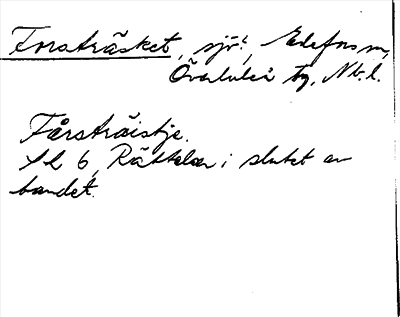 Forsträsket, sjö?, Edefors sn,
Överluleå tg, Nb. l.
Fårsträistje.
Sl 6, Rättelser i slutet av
bandet.